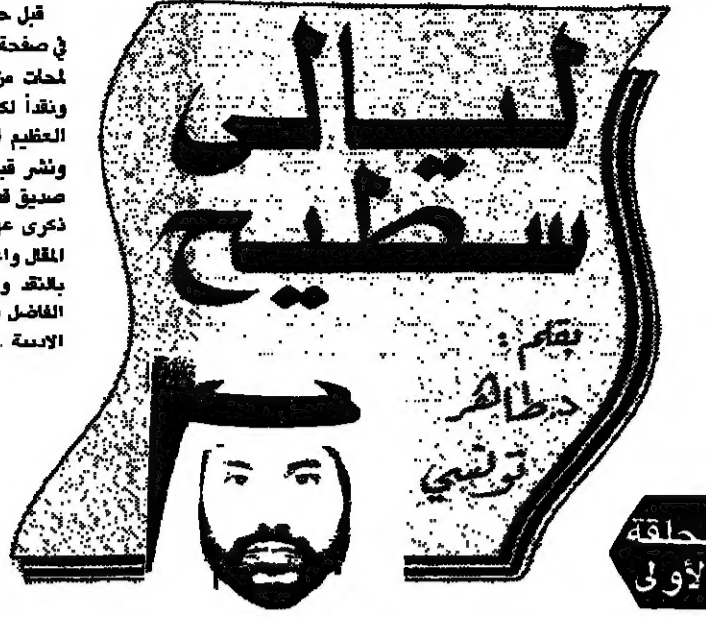 ليالى
سطيح
بقلم :
د. طاهر
تونسي
الحلقة
الأولى
قبل
في صفحة
لمحات من
ونقداً
العظيم
ونشر
صديق
ذكرى
المقال
بالنقد
الفاضل
الادبية